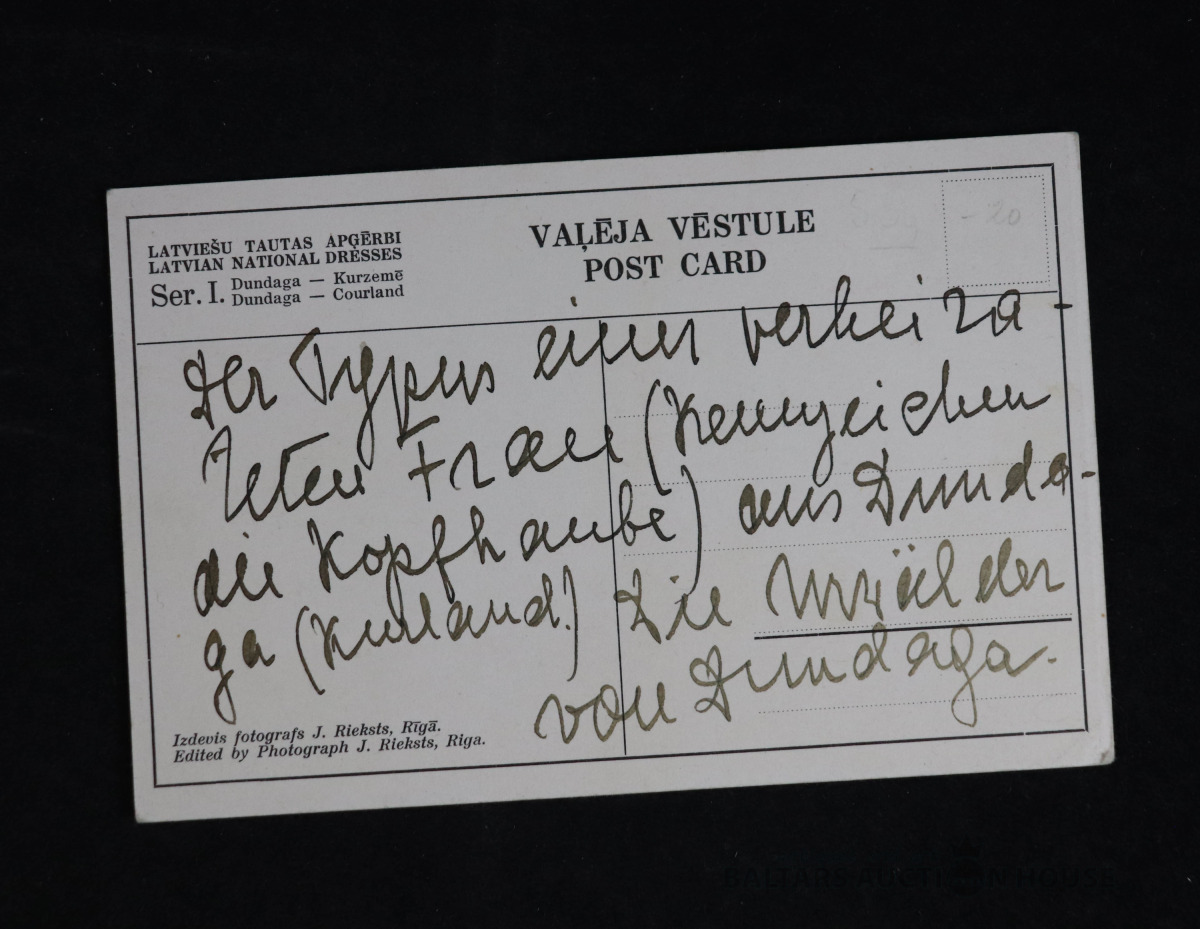 LATVIEŠU TAUTAS APĢĒRBI
LATVIAN NATIONAL DRESSES
Ser. I. Dundaga — Kurzemē
Dundaga — Courland
VAĻĒJA VĒSTULE
POST CARD
- 20
Der Typus einer verheira-
teten Frau (Kennzeichen
die Kopfhaube) aus Dunda-
ga (Kurland!) Die Urwälder
von Dundaga.
Izdevis fotografs J. Rieksts, Rīgā.
Edited by Photograph J. Rieksts, Riga.
BALTARS AUCTION HOUSE